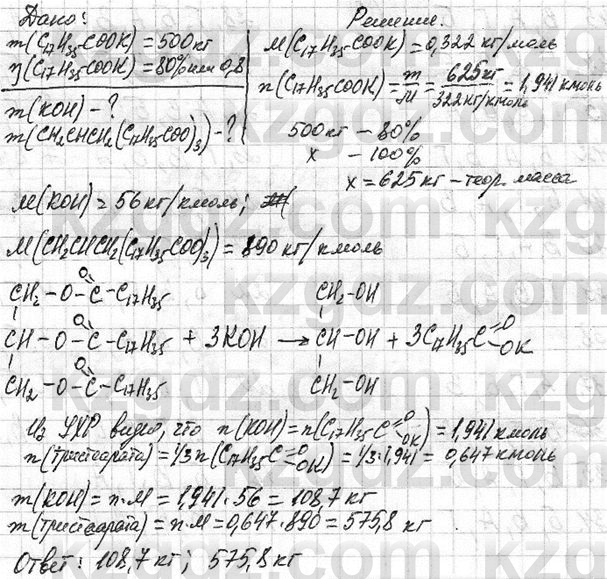 Дано:
m(C₁₇H₃₅COOK) = 500кг
η(C₁₇H₃₅COOK) = 80% или 0,8
m(KOH) - ?
m(CH₂CHCH₂(C₁₇H₃₅COO)₃) - ?
Решение.
M(C₁₇H₃₅COOK) = 0,322 кг/моль
n(C₁₇H₃₅COOK) = m/M = 625кг/322кг/кмоль = 1,941 кмоль
500кг – 80%
x – 100%
x = 625 кг – теор. масса
M(KOH) = 56 кг/кмоль;
M(CH₂CHCH₂(C₁₇H₃₅COO)₃) = 890 кг/кмоль
CH₂ - O - C(=O) - C₁₇H₃₅ CH₂-OH
CH - O - C(=O) - C₁₇H₃₅ + 3KOH → CH-OH + 3C₁₇H₃₅C(=O)-OK
CH₂ - O - C(=O) - C₁₇H₃₅ CH₂-OH
Из УХР видно, что n(KOH) = n(C₁₇H₃₅C(=O)-OK) = 1,941 кмоль
n(тристеарата) = 1/3 n(C₁₇H₃₅C(=O)-OK) = 1/3·1,941 = 0,647 кмоль
m(KOH) = n·M = 1,941·56 = 108,7 кг
m(тристеарата) = n·M = 0,647·890 = 575,8 кг
Ответ: 108,7 кг; 575,8 кг
kzgdz.com